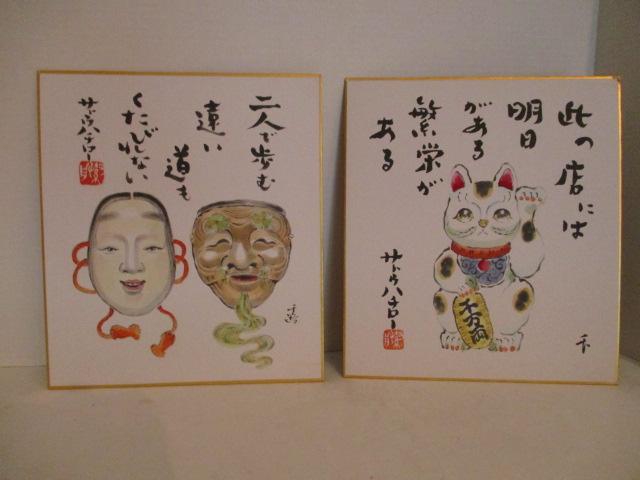 二人で歩む
遠い
道も
くたびれない
サトウハチロー
此の店には
明日
がある
繁栄が
ある
サトウハチロー
千万両
千